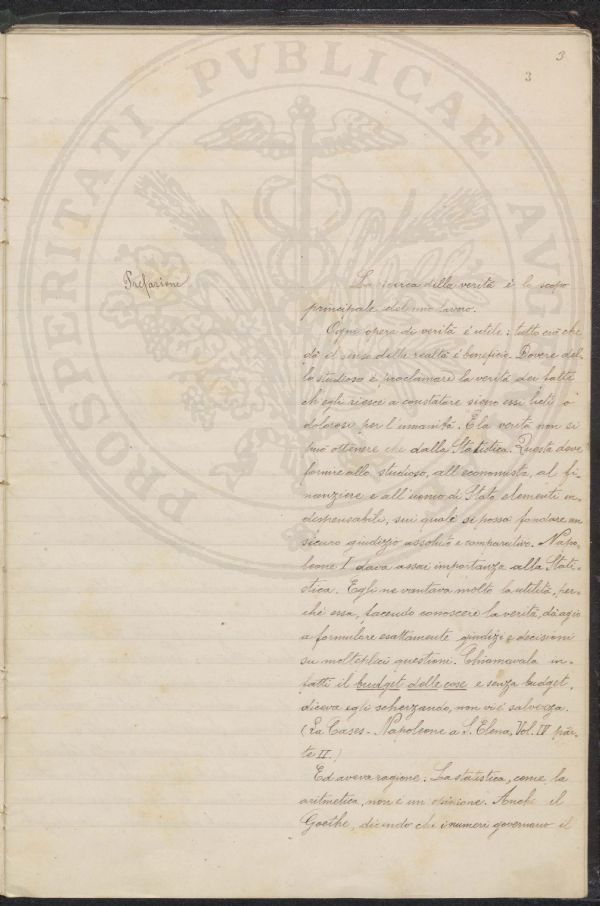 3
3
PROSPERITATI PVBLICAE AVG
Prefazione
La ricerca della verità è lo scopo
principale del mio lavoro.
Ogni opera di verità è utile; tutto ciò che
dà il senso della realtà è benefico. Dovere del-
lo studioso è proclamare la verità dei fatti
ch'egli riesce a constatare siano essi lieti o
dolorosi per l'umanità. E la verità non si
può ottenere che dalla Statistica. Questa deve
fornire allo studioso, all'economista, al fi-
nanziere e all'uomo di Stato elementi in-
dispensabili, sui quali si possa fondare un
sicuro giudizio assoluto e comparativo. Napo-
leone I dava assai importanza alla Stati-
stica. Egli ne vantava molto la utilità, per-
chè essa, facendo conoscere la verità, dà agio
a formulare esattamente giudizi e decisioni
su molteplici questioni. Chiamavala in-
fatti il budget delle cose e senza budget,
diceva egli scherzando, non vi è salvezza.
(La Cases - Napoleone a S. Elena, Vol. IV par-
te II.)
Ed aveva ragione: La statistica, come la
aritmetica, non è un opinione. Anche il
Goethe, dicendo che i numeri governano il